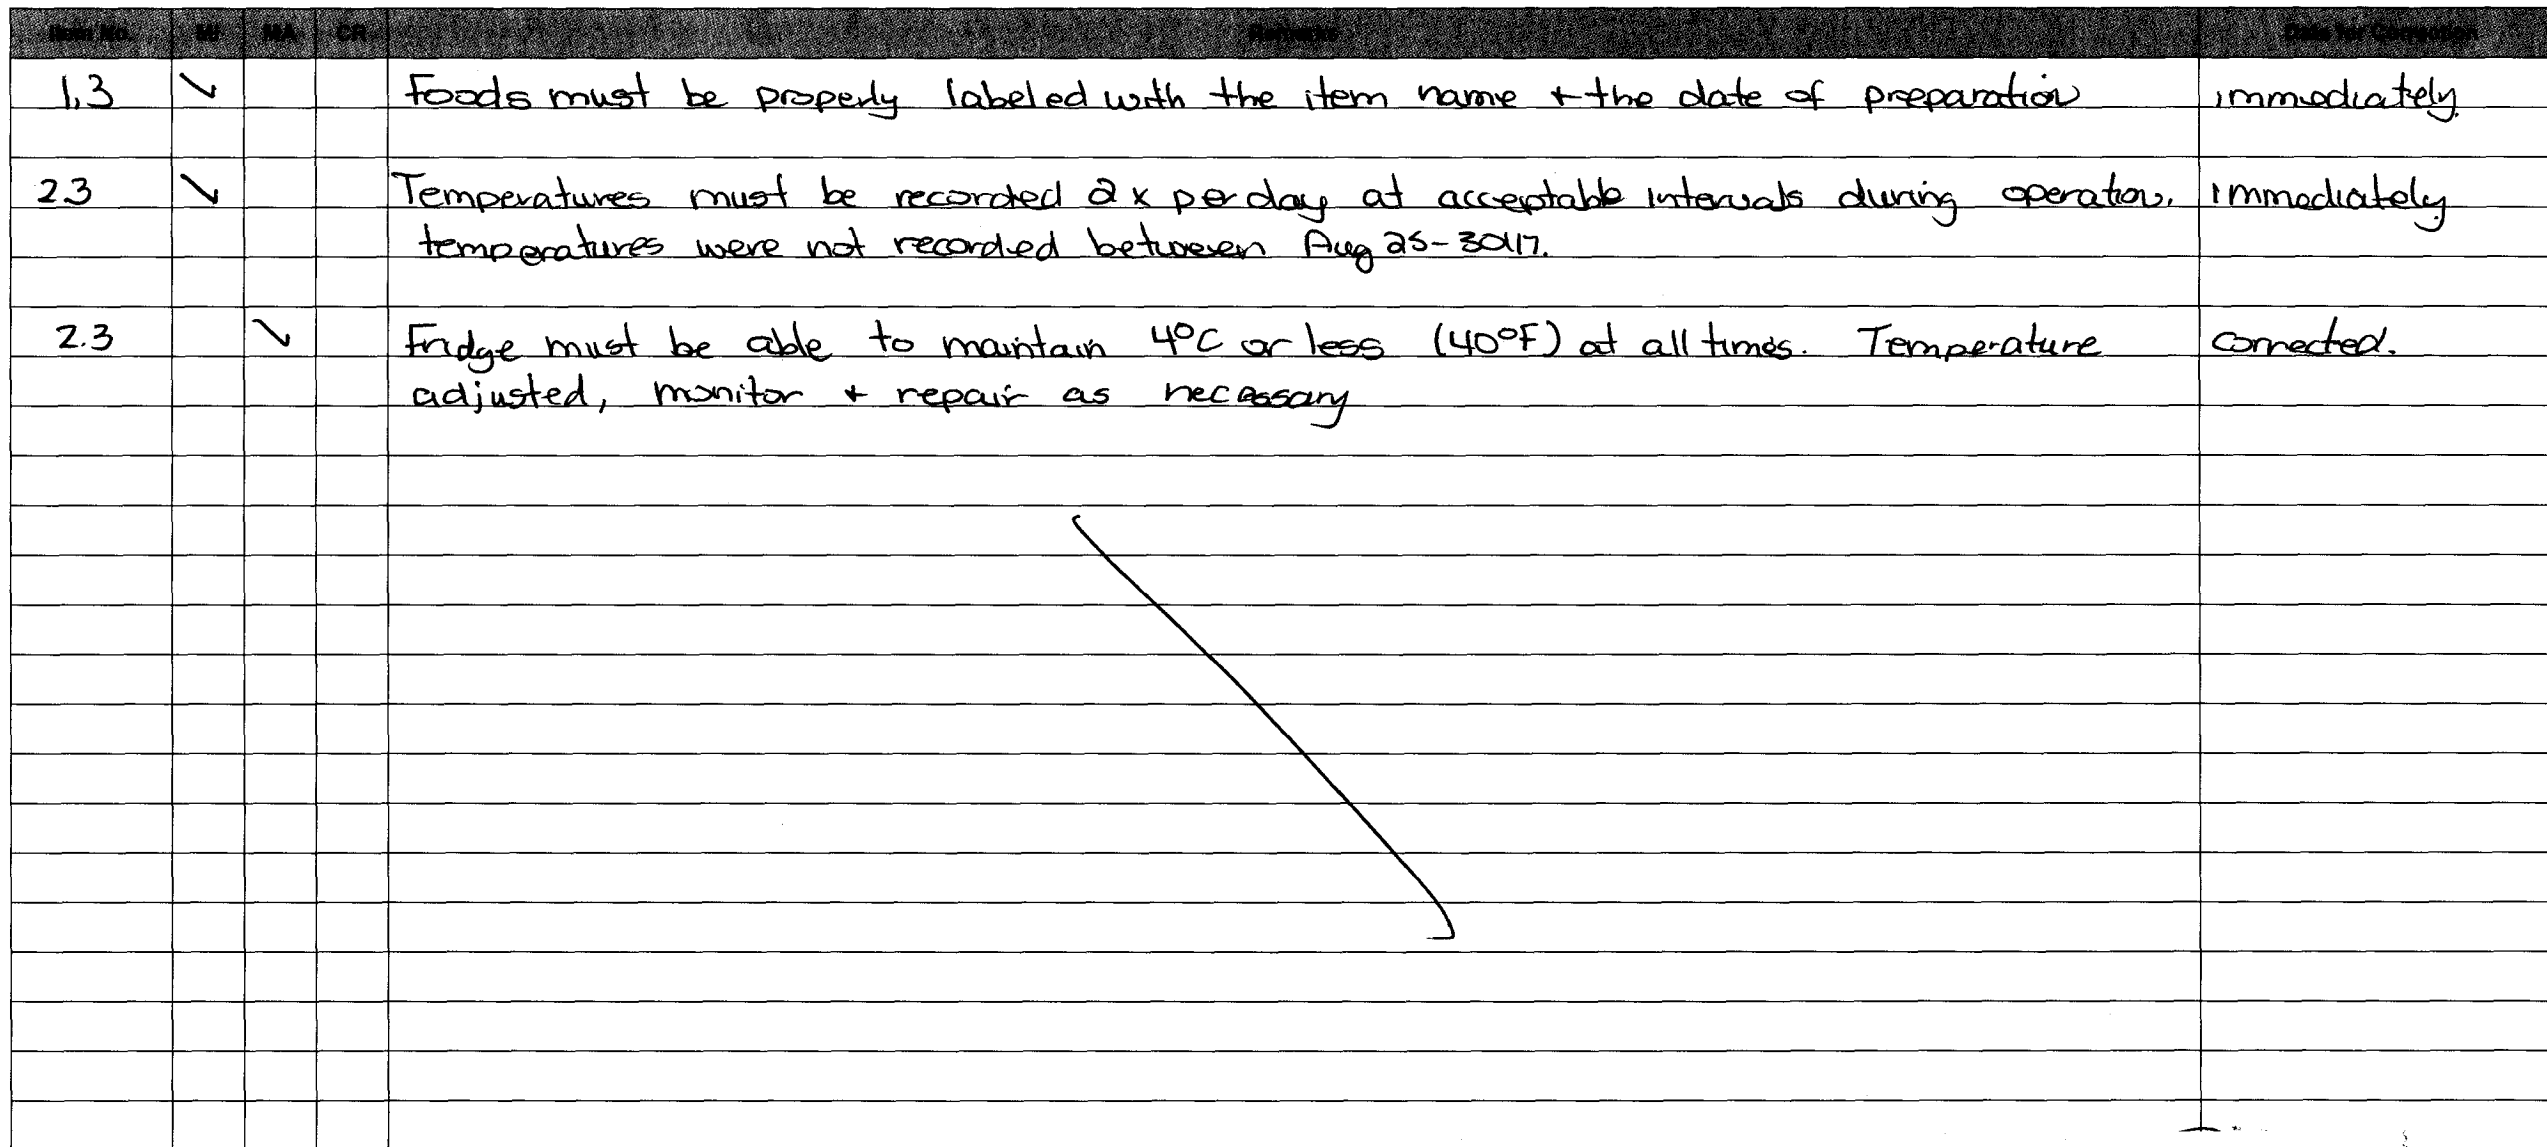 Item No. MI MA CR Remarks Date for Correction
1.3 ✓ Foods must be properly labeled with the item name + the date of preparation immediately.
2.3 ✓ Temperatures must be recorded 2x per day at acceptable intervals during operation. immediately
temperatures were not recorded between Aug 25-30/17.
2.3 ✓ Fridge must be able to maintain 4°C or less (40°F) at all times. Temperature corrected.
adjusted, monitor + repair as necessary